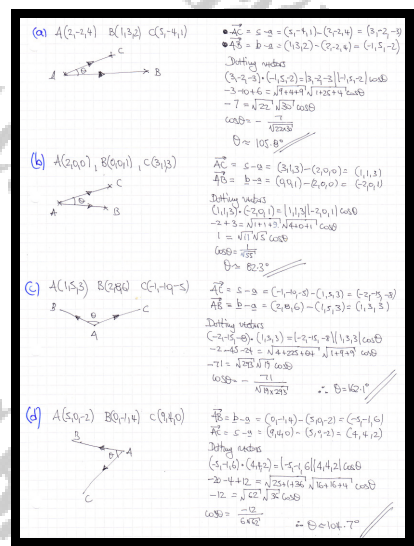 (a) A(2,-2,4) B(1,3,2) C(5,-4,1)
C
A θ B
AC = c - a = (5,-4,1) - (2,-2,4) = (3,-2,-3)
AB = b - a = (1,3,2) - (2,-2,4) = (-1,5,-2)
Dotting vectors
(3,-2,-3)·(-1,5,-2) = |3,-2,-3||-1,5,-2| cosθ
-3-10+6 = √9+4+9 √1+25+4 cosθ
-7 = √22 √30 cosθ
cosθ = - 7/√22×30
θ ≈ 105.8°
(b) A(2,0,0), B(0,0,1), C(3,1,3)
C
A θ B
AC = c - a = (3,1,3) - (2,0,0) = (1,1,3)
AB = b - a = (0,0,1) - (2,0,0) = (-2,0,1)
Dotting vectors
(1,1,3)·(-2,0,1) = |1,1,3||-2,0,1| cosθ
-2+3 = √1+1+9 √4+0+1 cosθ
1 = √11 √5 cosθ
cosθ = 1/√55
θ ≈ 82.3°
(c) A(1,5,3) B(2,8,6) C(-1,-10,-5)
B θ C
A
AC = c - a = (-1,-10,-5) - (1,5,3) = (-2,-15,-8)
AB = b - a = (2,8,6) - (1,5,3) = (1,3,3)
Dotting vectors
(-2,-15,-8)·(1,3,3) = |-2,-15,-8||1,3,3| cosθ
-2-45-24 = √4+225+64 √1+9+9 cosθ
-71 = √293 √19 cosθ
cosθ = - 71/√19×293
∴ θ ≈ 162.1°
(d) A(5,0,-2) B(0,-1,4) C(9,4,0)
B
θ A
C
AB = b - a = (0,-1,4) - (5,0,-2) = (-5,-1,6)
AC = c - a = (9,4,0) - (5,0,-2) = (4,4,2)
Dotting vectors
(-5,-1,6)·(4,4,2) = |-5,-1,6||4,4,2| cosθ
-20-4+12 = √25+1+36 √16+16+4 cosθ
-12 = √62 √36 cosθ
cosθ = -12/6√62
∴ θ ≈ 104.7°